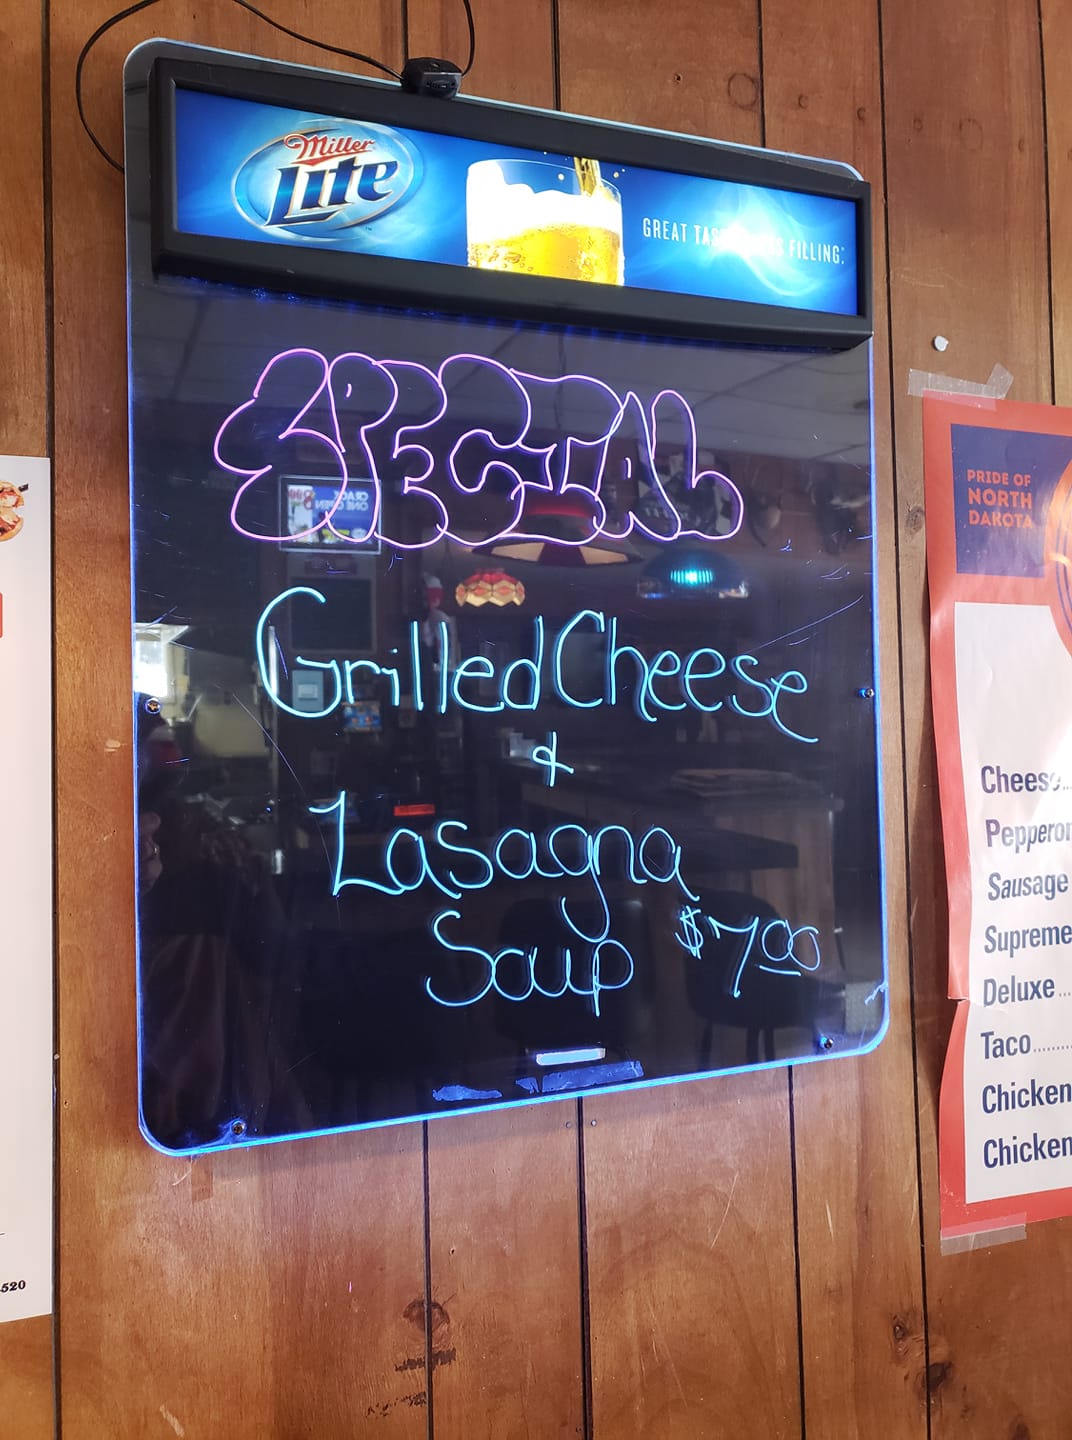 Miller
Lite
GREAT TASTE LESS FILLING.
SPECIAL
Grilled Cheese
&
Lasagna
Soup $7.00
PRIDE OF
NORTH
DAKOTA
Cheese...
Pepperon
Sausage
Supreme
Deluxe...
Taco........
Chicken
Chicken
520